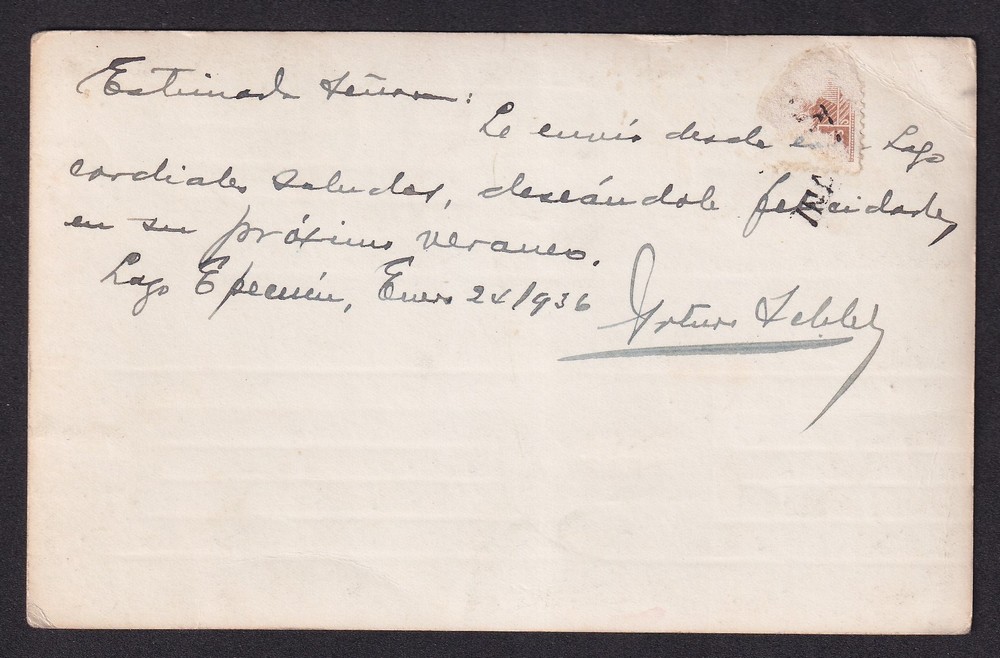 Estimada Señora:
Le envío desde este Lago
cordiales saludos, deseándole felicidades
en su próximo veraneo.
Lago Epecuén, Enero 24/936
Arturo